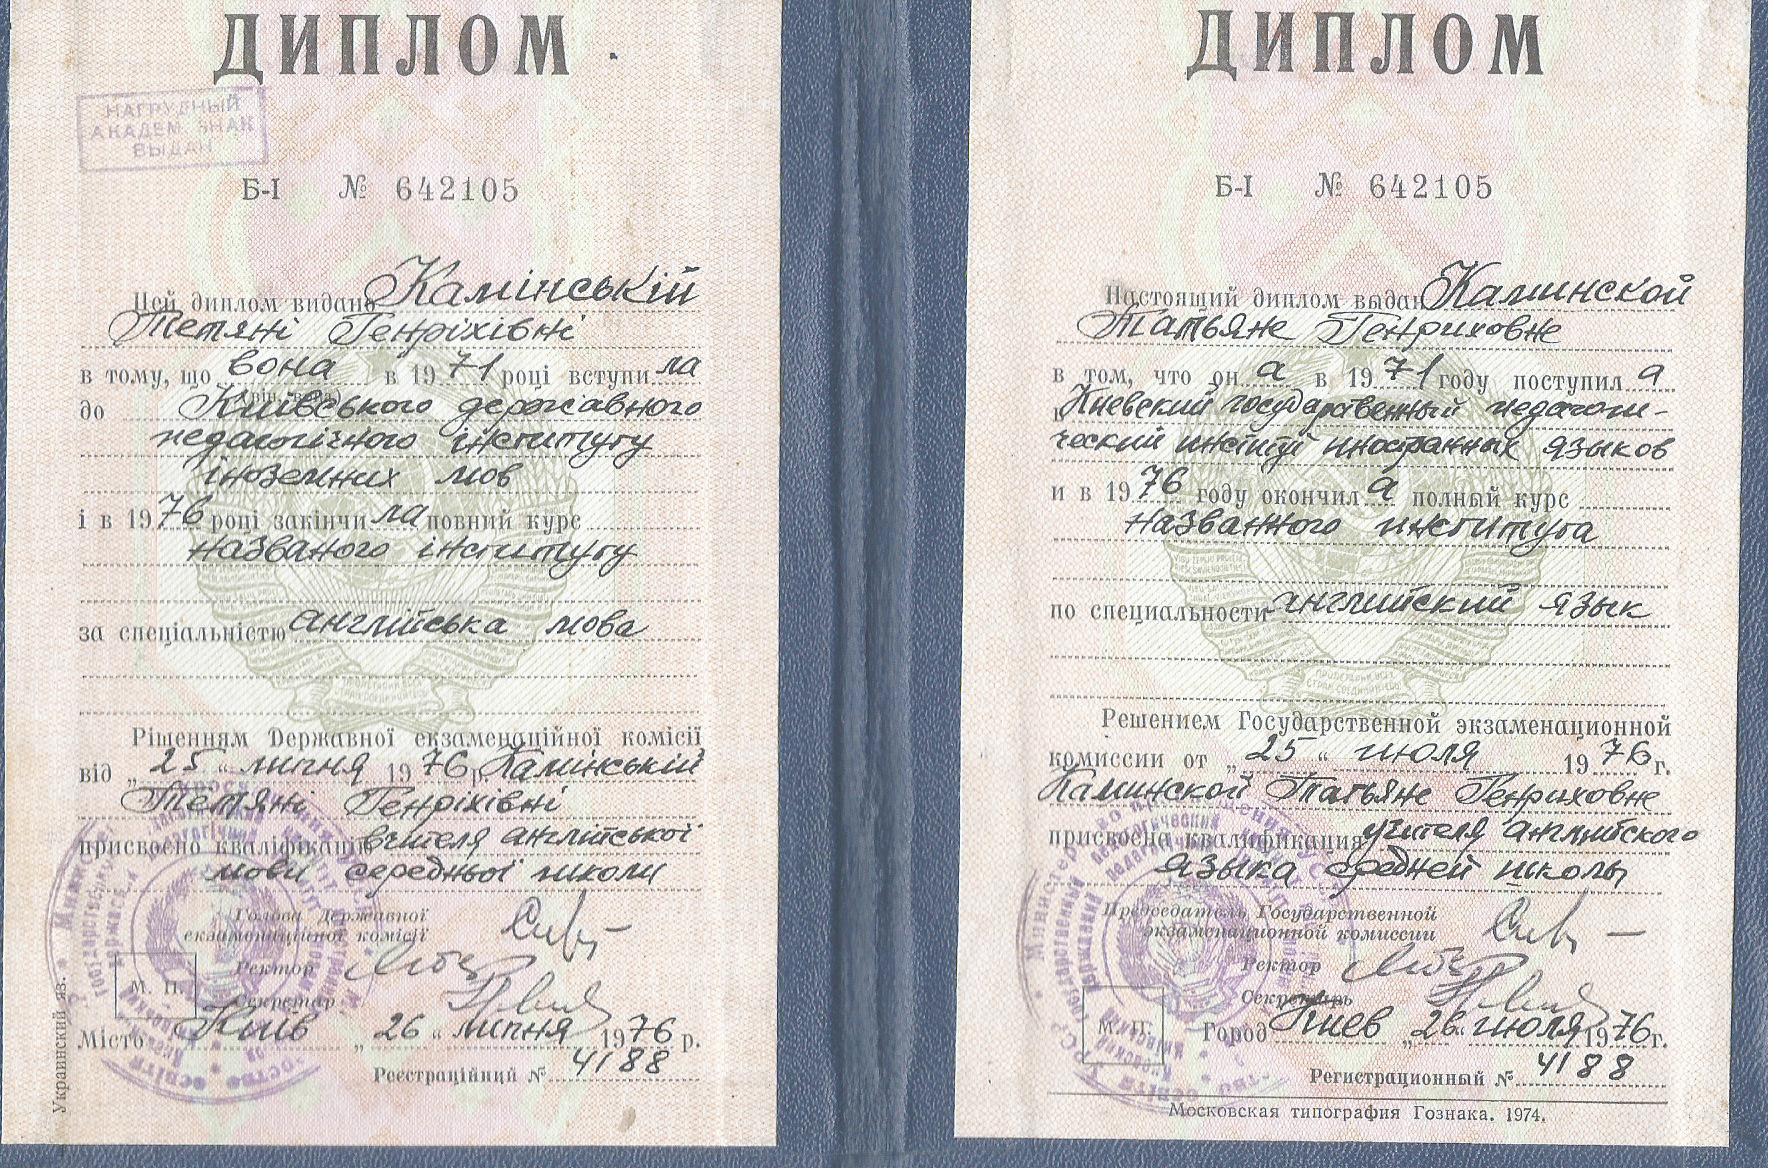 ДИПЛОМ
НАГРУДНЫЙ
АКАДЕМ. ЗНАК
ВЫДАН
Б-I № 642105
Цей диплом видано Камінській
Тетяні Генріхівні
в тому, що вона в 1971 році вступила
до Київського державного
педагогічного інституту
іноземних мов
і в 1976 році закінчила повний курс
названого інституту
за спеціальністю англійська мова
Рішенням Державної екзаменаційної комісії
від „25“ липня 1976 р. Камінській
Тетяні Генріхівні
присвоєно кваліфікацію вчителя англійської
мови середньої школи
Голова Державної
екзаменаційної комісії
Ректор
Секретар
М. П.
Місто Київ „26“ липня 1976 р.
Реєстраційний № 4188
Украинский яз.
ДИПЛОМ
Б-I № 642105
Настоящий диплом выдан Каминской
Татьяне Генриховне
в том, что она в 1971 году поступила
в Киевский государственный педагоги-
ческий институт иностранных языков
и в 1976 году окончила полный курс
названного института
по специальности английский язык
Решением Государственной экзаменационной
комиссии от „25“ июля 1976 г.
Каминской Татьяне Генриховне
присвоена квалификация учителя английского
языка средней школы
Председатель Государственной
экзаменационной комиссии
Ректор
Секретарь
М. П.
Город Киев „26“ июля 1976 г.
Регистрационный № 4188
Московская типография Гознака. 1974.